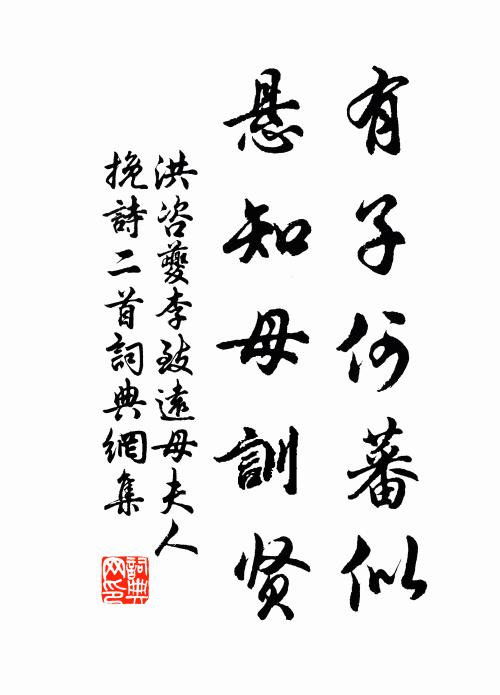 有子何蕃似
悬知母訓贤
洪咨夔李致遠母夫人
挽詩二首詞典網集
詞典
网印